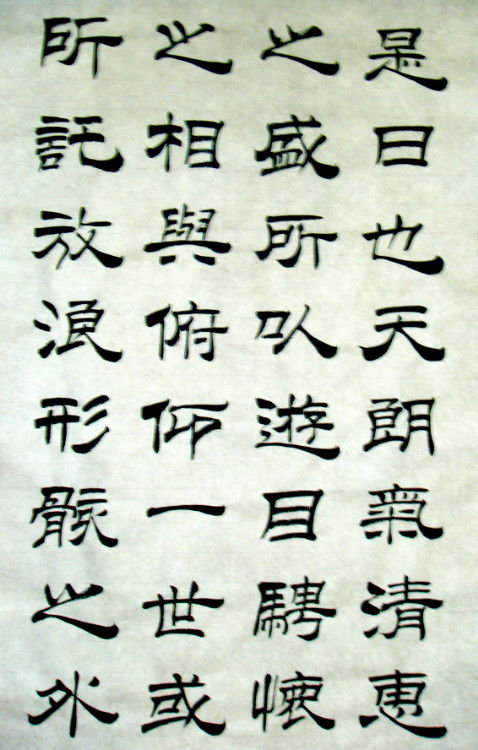 是日也天朗氣清惠
之盛所以遊目騁懷
之相與俯仰一世或
所託放浪形骸之外